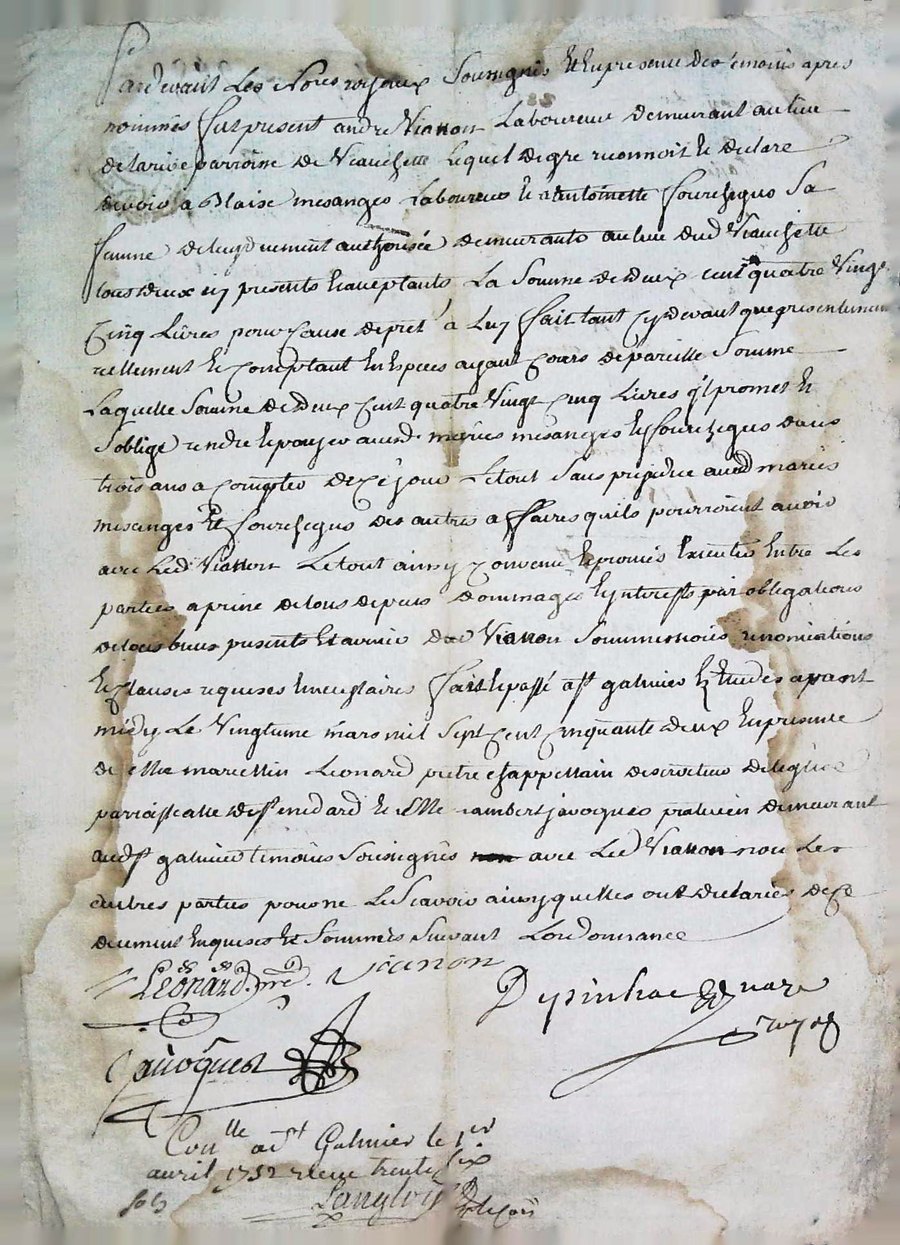 Pardevant Les No.res royaux Soussignés Et En presence des témoins apres
nommés fut present andré Viannon Laboureur demeurant au lieu
de larive parroisse de Viauchette Lequel de gré reconnoit Et declare
devoir a Blaise mesanges Laboureur Et antoinette fourchegus Sa
femme de luy duement authorisée demeurants au lieu dud Viauchette
tous deux icy presents Et aceptants La Somme de deux cent quatre Vingt
Cinq Livres pour Cause de prêt a Luy fait tant cydevant que presentement
réellement Et Comptant En Especes ayant Cours de pareille Somme
Laquelle Somme de deux Cent quatre Vingt Cinq Livres q'il promet Et
S'oblige rendre Et payer auxd. mariés mesanges Et fourchegus dans
trois ans a Compter de Ce jour Le tout Sans prejudice auxd mariés
mesanges Et fourchegus des autres affaires quils pourroient avoir
avec Led Viannon Le tout ainsy Convenu Et promis Executer Entre Les
parties a peine de tous depens dommages Et interests par obligations
de tous biens presents Et avenir dud Viannon Soummissions renonciations
Et Clauses requises Et necessaires fait Et passé a St galmier Et Etudes avant
midy Le Vingtunie mars mil Sept Cent Cinquante deux En presence
de Mre marcellin Leonard pretre Chappellain deserviteur de léglise
parroissialle de St medard Et Mre lambert javoques praticien demeurant
aud St galmier temoins Soussignés avec Led Viannon non Les
autres parties pour ne Le Scavoir ainsy quelles ont declarées de Ce
deuement Enquises Et Sommés Suivant Lordonnance
Leonard. pre. Vianon
Depinhac No.re
royal
Javoques
Con.lle a St Galmier le 1er
avril 1752 receu trente six
sols Langlois